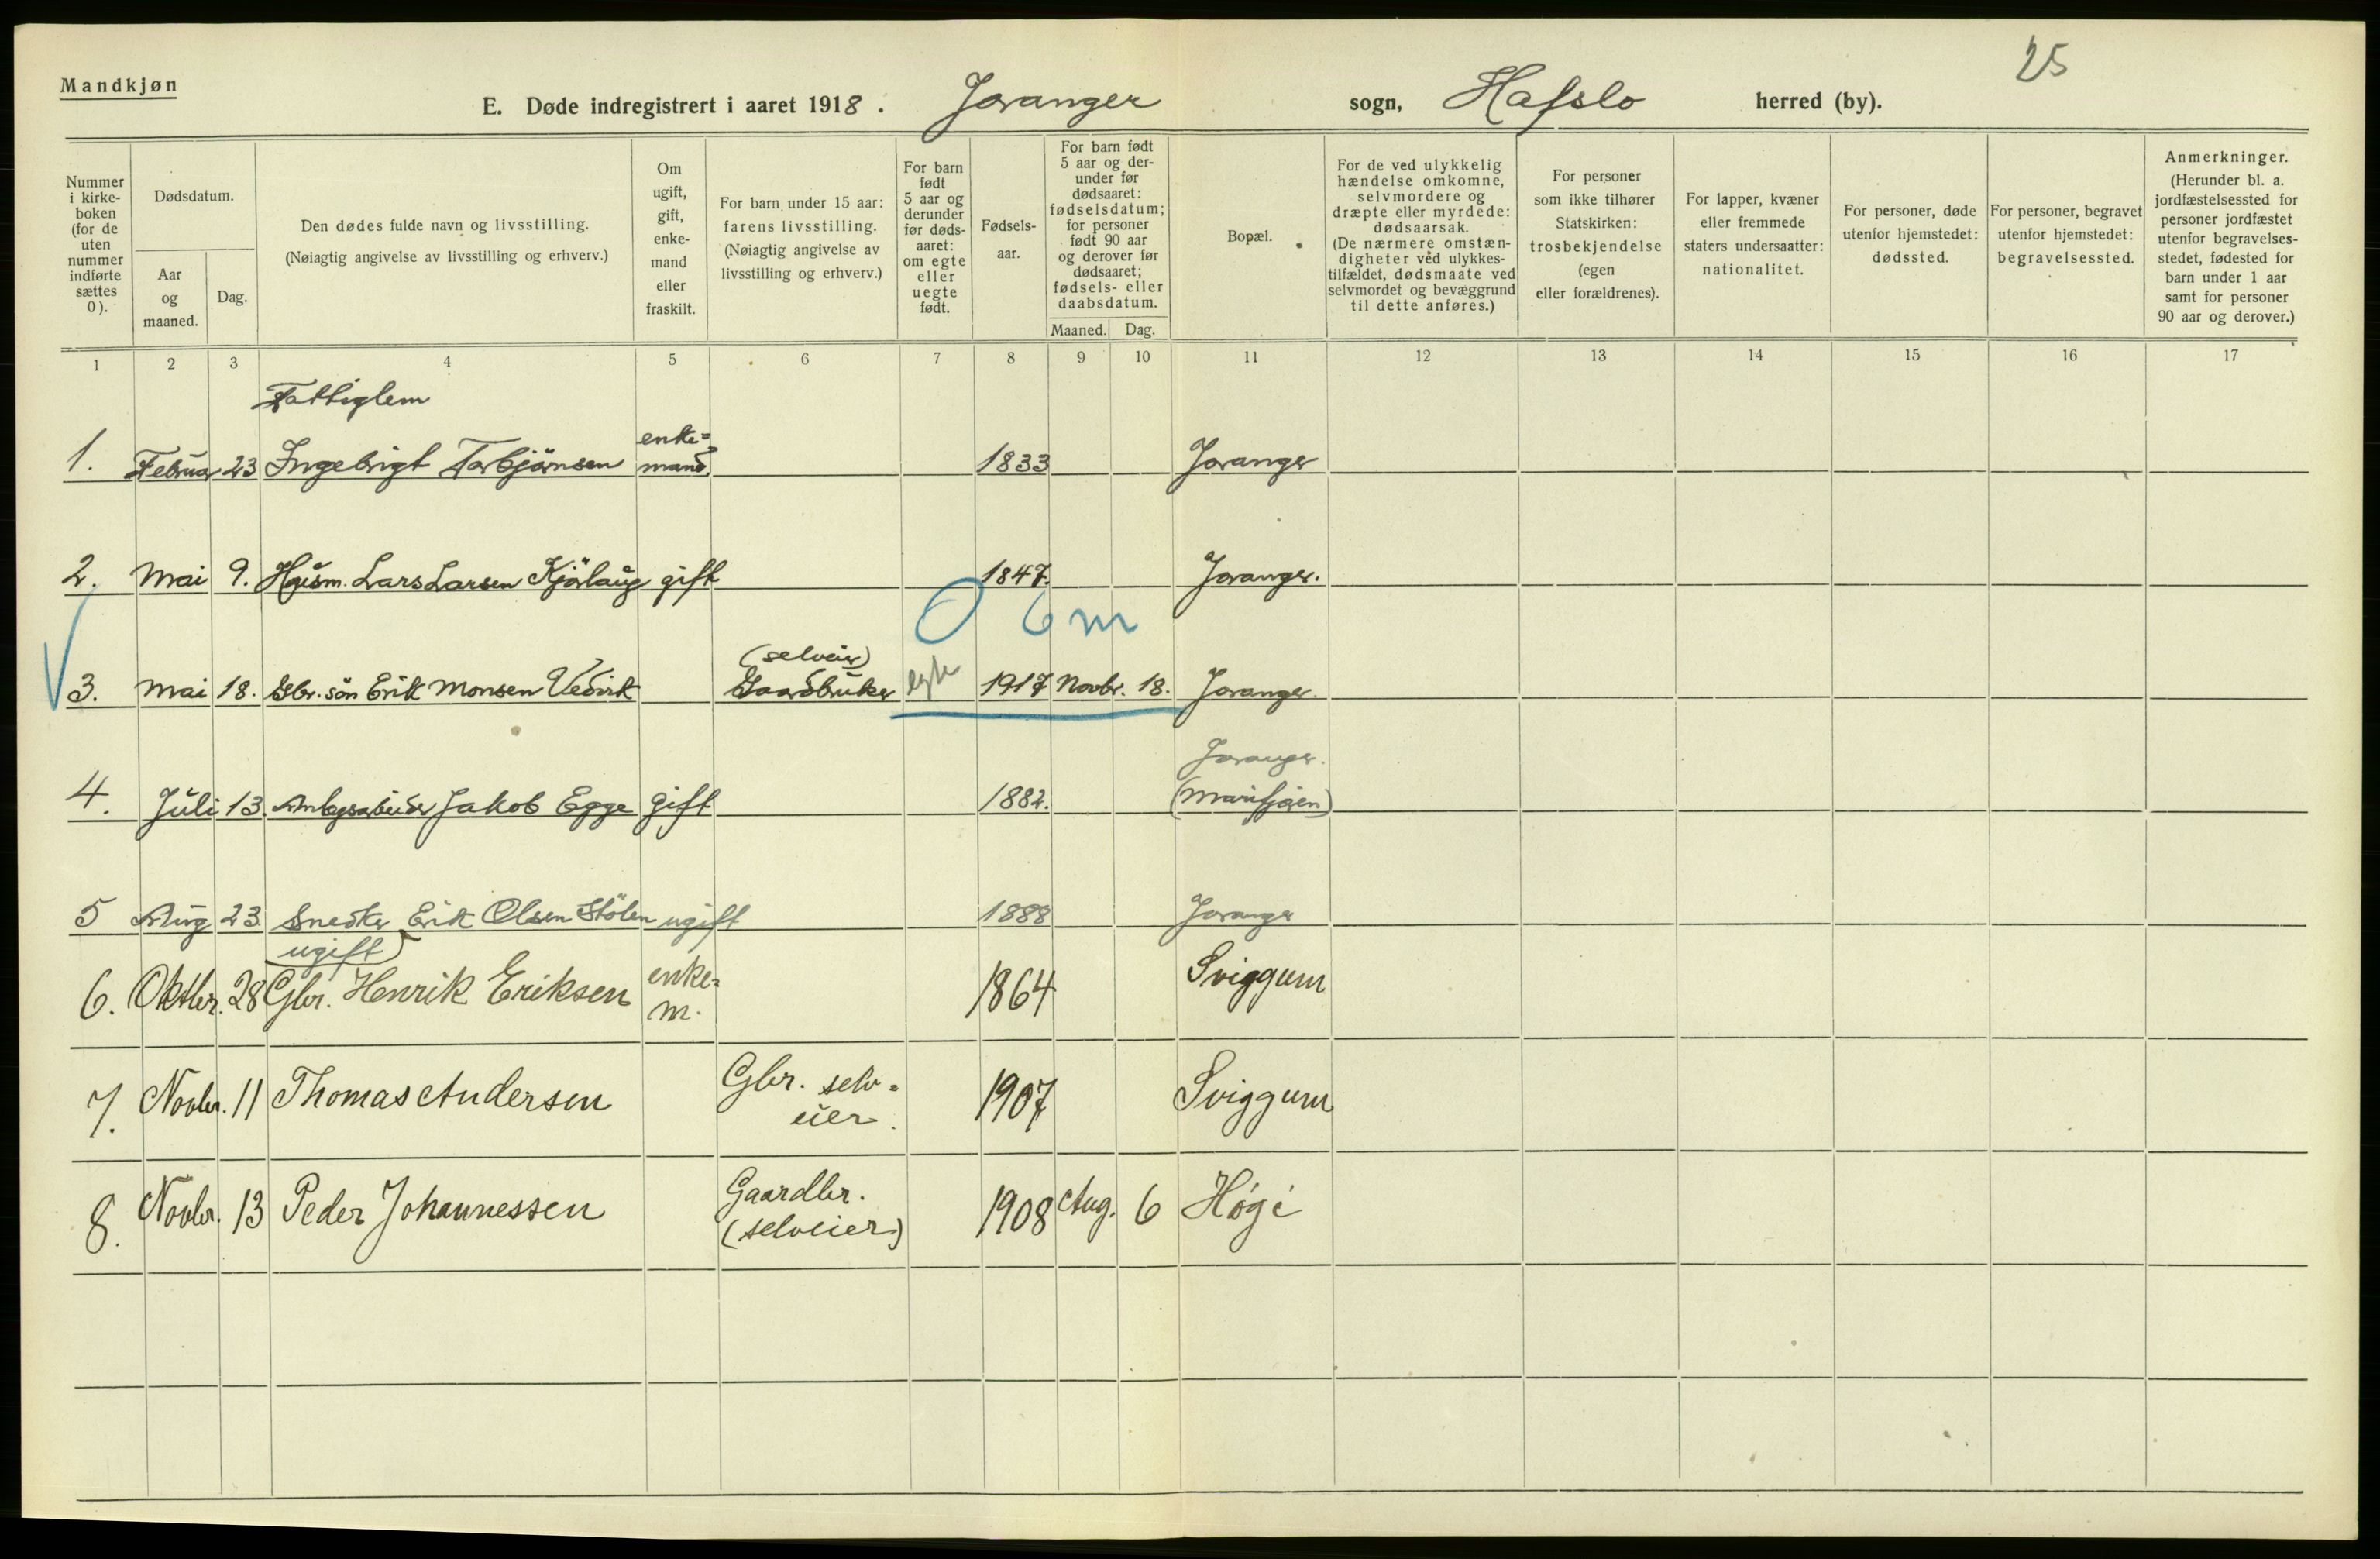 25
Mandkjøn
E. Døde indregistrert i aaret 1918. Joranger sogn, Hafslo herred (by).
Nummer i kirke-boken (for de uten nummer indførte sættes 0).
Dødsdatum.
Aar og maaned.
Dag.
Den dødes fulde navn og livsstilling.
(Nøiagtig angivelse av livsstilling og erhverv.)
Om ugift, gift, enke-mand eller fraskilt.
For barn under 15 aar: farens livsstilling.
(Nøiagtig angivelse av livsstilling og erhverv.)
For barn født 5 aar og derunder før døds-aaret: om egte eller uegte født.
Fødsels-aar.
For barn født 5 aar og der-under før dødsaaret: fødselsdatum; for personer født 90 aar og derover før dødsaaret; fødsels- eller daabsdatum.
Maaned. Dag.
Bopæl.
For de ved ulykkelig hændelse omkomne, selvmordere og dræpte eller myrdede: dødsaarsak.
(De nærmere omstæn-digheter ved ulykkes-tilfældet, dødsmaate ved selvmordet og bevæggrund til dette anføres.)
For personer som ikke tilhører Statskirken: trosbekjendelse (egen eller forældrenes).
For lapper, kvæner eller fremmede staters undersaatter: nationalitet.
For personer, døde utenfor hjemstedet: dødssted.
For personer, begravet utenfor hjemstedet: begravelsessted.
Anmerkninger.
(Herunder bl. a. jordfæstelsessted for personer jordfæstet utenfor begravelses-stedet, fødested for barn under 1 aar samt for personer 90 aar og derover.)
1 2 3 4 5 6 7 8 9 10 11 12 13 14 15 16 17
Fattiglem
1. Februar 23 Ingebrigt Torbjörnsen enke=mand. 1833 Joranger
2. Mai 9. Husm. Lars Larsen Kjörlaug gift 1847. Joranger.
0 6 m
(selveier)
3. Mai 18. Gbr. sön Erik Monsen Vedvik Gaardbruker egte 1917 Novbr. 18. Joranger.
Joranger.
4. Juli 13. Anlegsarbeider Jakob Egge gift 1882. (Marifjøren)
5 Aug 23. Snedker Erik Olsen Stölen ugift 1888 Joranger
ugift)
6. Oktbr. 28 Gbr. Henrik Eriksen enke=m. 1864 Sviggum
7. Novbr. 11 Thomas Andersen Gbr. selv=eier. 1907 Sviggum
8. Novbr. 13 Peder Johannessen Gaardbr. (selveier) 1908 Aug. 6 Høgi